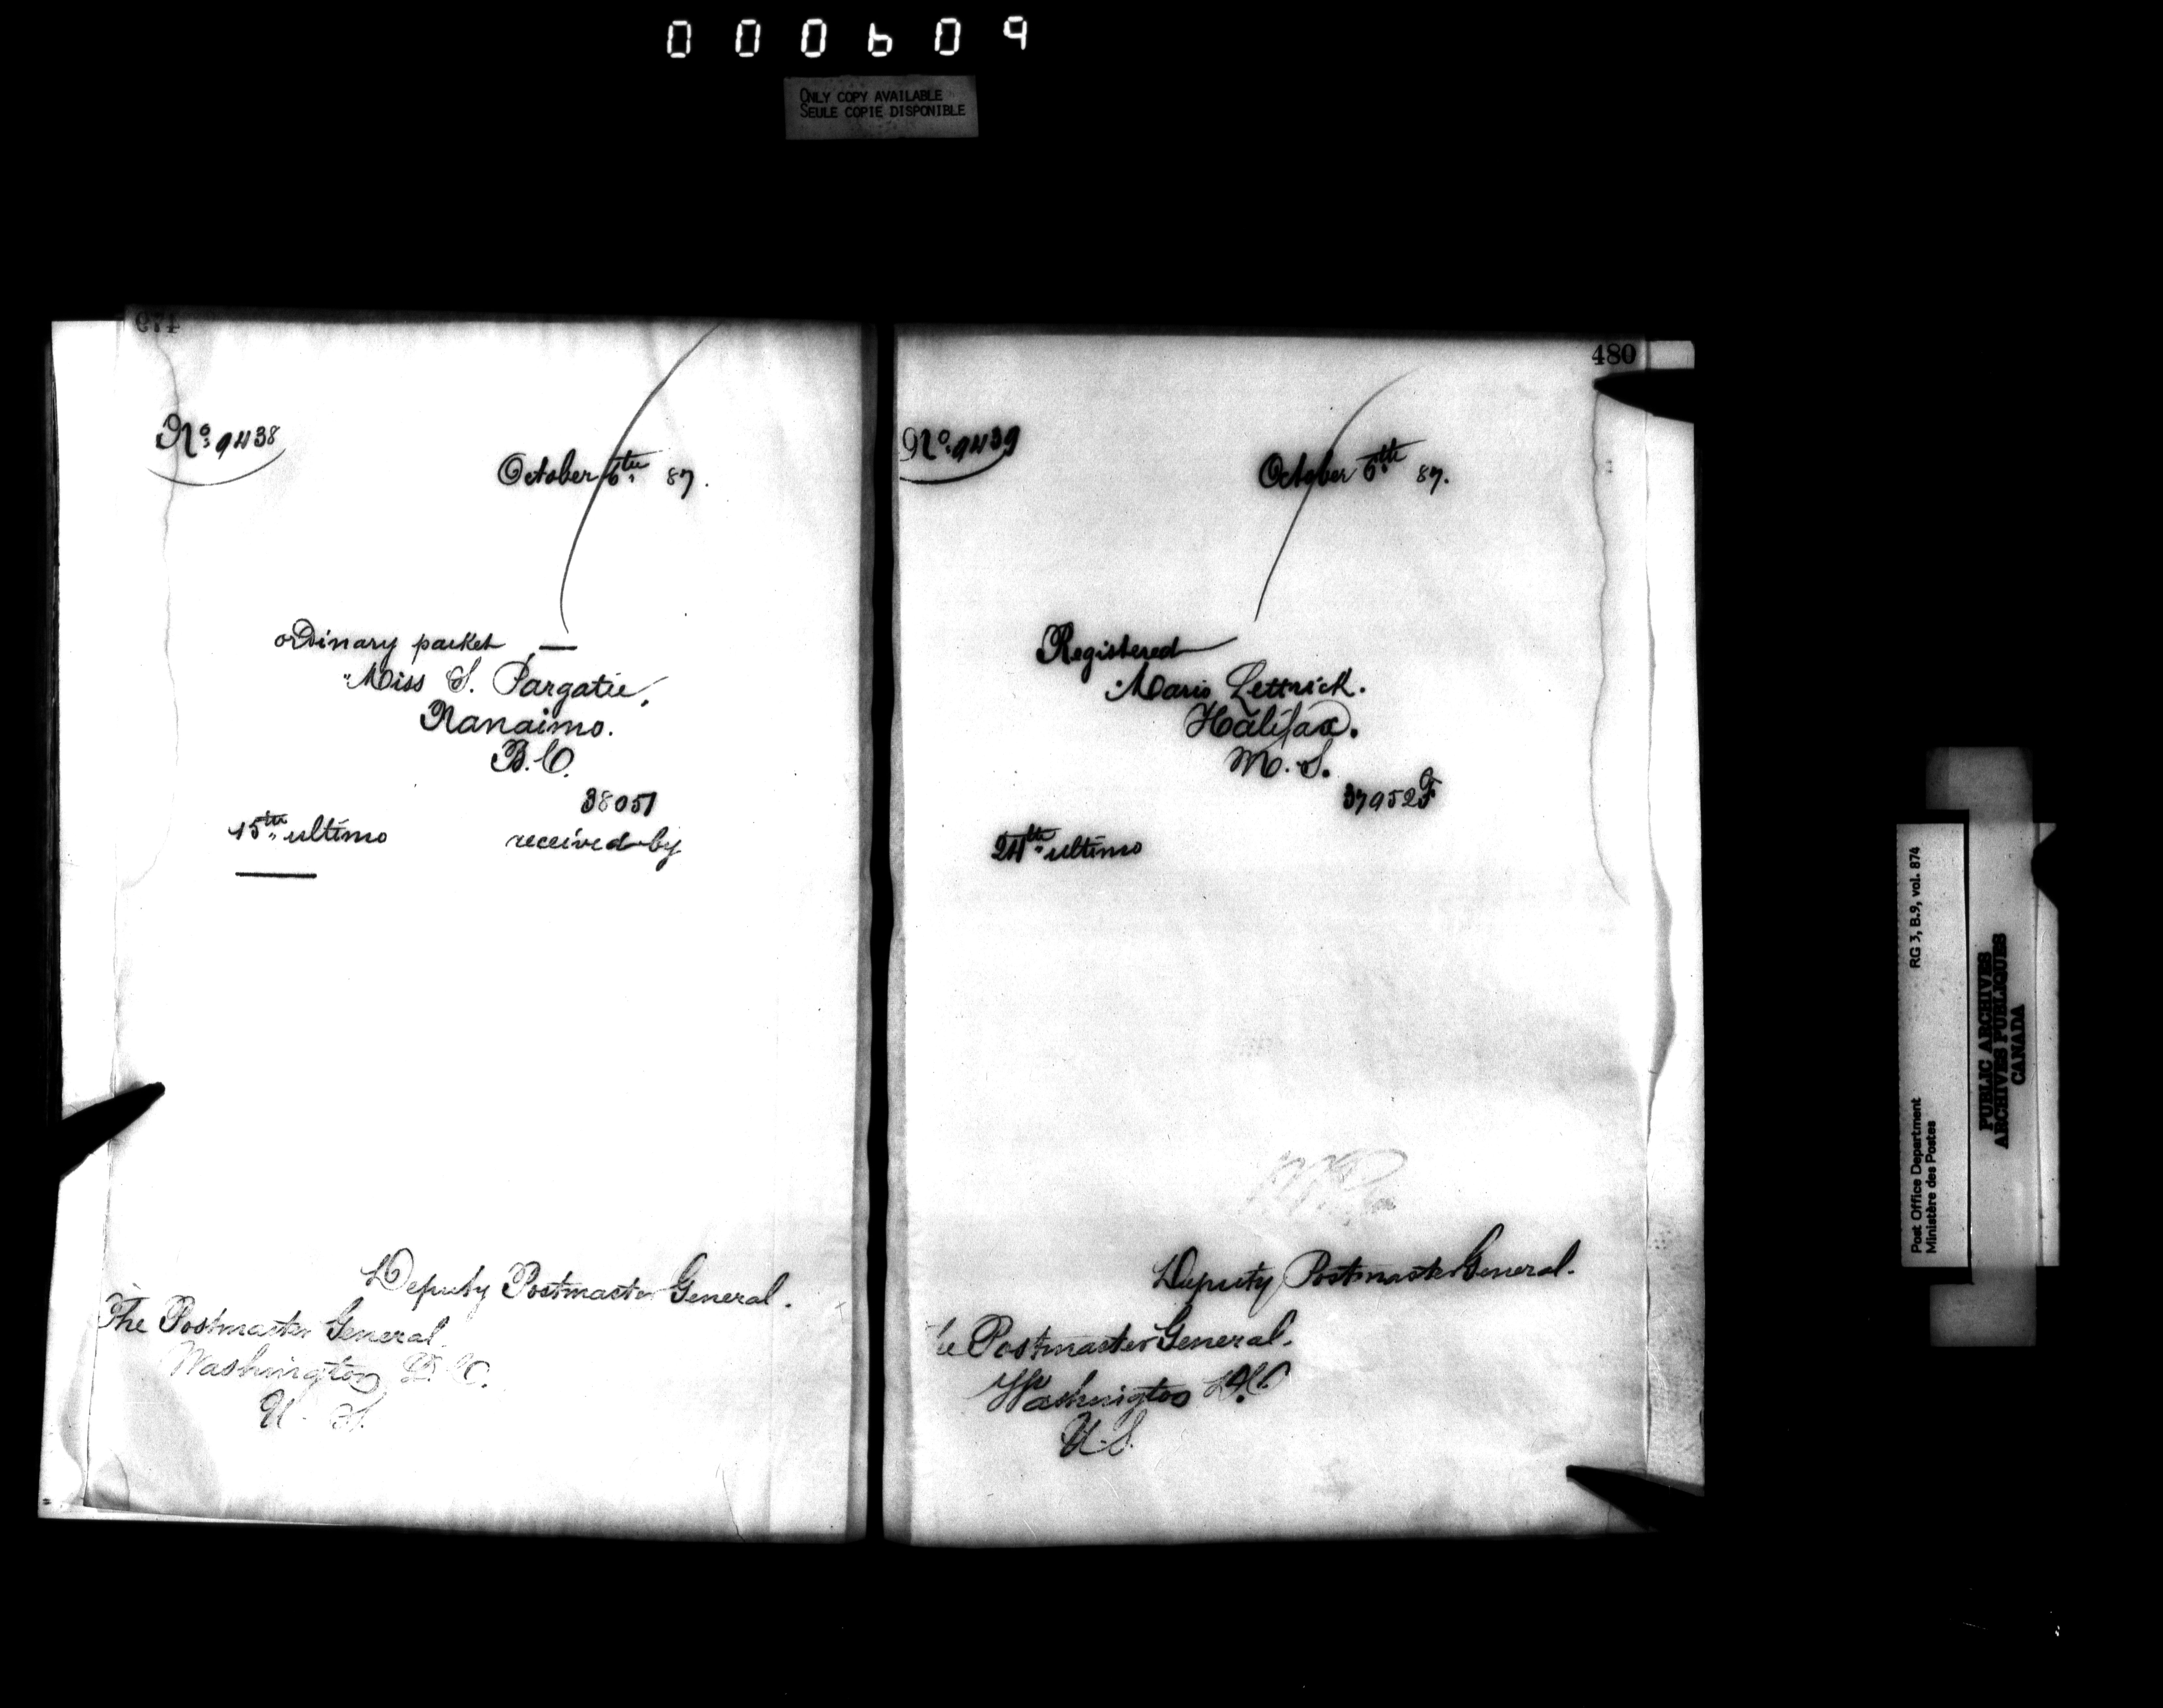 000609
ONLY COPY AVAILABLE
SEULE COPIE DISPONIBLE
No. 9438
October 6th, 87.
ordinary packet —
"Miss S. Pargatie,
Nanaimo.
B.C.
38051
15th ultimo received by
Deputy Postmaster General.
The Postmaster General
Washington D.C.
U. S.
480
No. 9439
October 6th 87.
Registered
Lettrick.
Halifax.
N. S.
37952F
24th ultimo
Deputy Postmaster General.
he Postmaster General.
Washington D.C.
U.S.
RG 3, B.9, vol. 874
Post Office Department
Ministère des Postes
PUBLIC ARCHIVES
ARCHIVES PUBLIQUES
CANADA